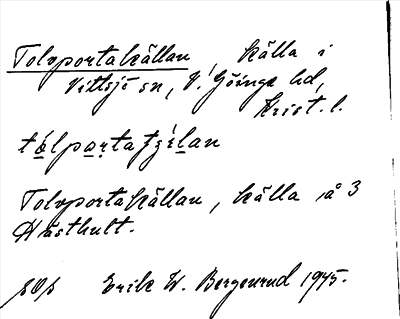 Tolvportakällan, källa i
Vittsjö sn, V. Göinge hd,
Krist. l.
Tolvportakällan, källa å 3
Hästhult.
Erik W. Bergenrud 1945.